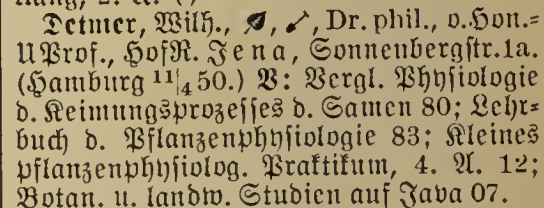 Detmer, Wilh., Dr. phil., o.Hon.=
UProf., HofR. Jena, Sonnenbergstr.1a.
(Hamburg 11|4 50.) V: Vergl. Physiologie
d. Keimungsprozesses d. Samen 80; Lehr=
buch d. Pflanzenphysiologie 83; Kleines
pflanzenphysiolog. Praktikum, 4. A. 12;
Botan. u. landw. Studien auf Java 07.